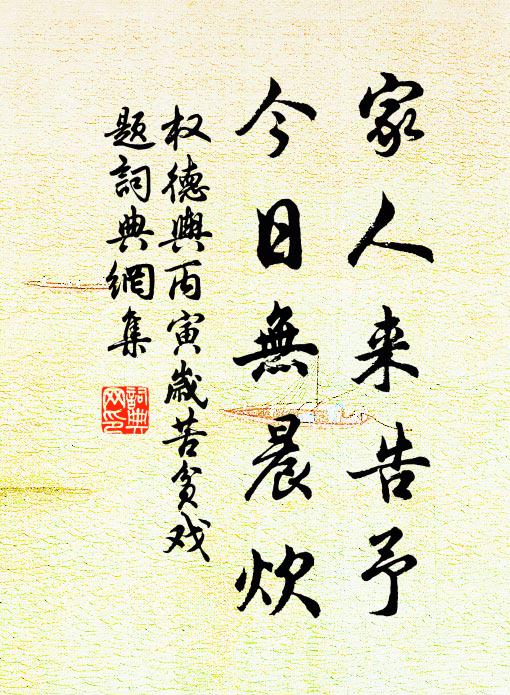 家人来告予
今日無晨炊
权德舆丙寅岁苦贫戏
题詞典網集
詞典
网印